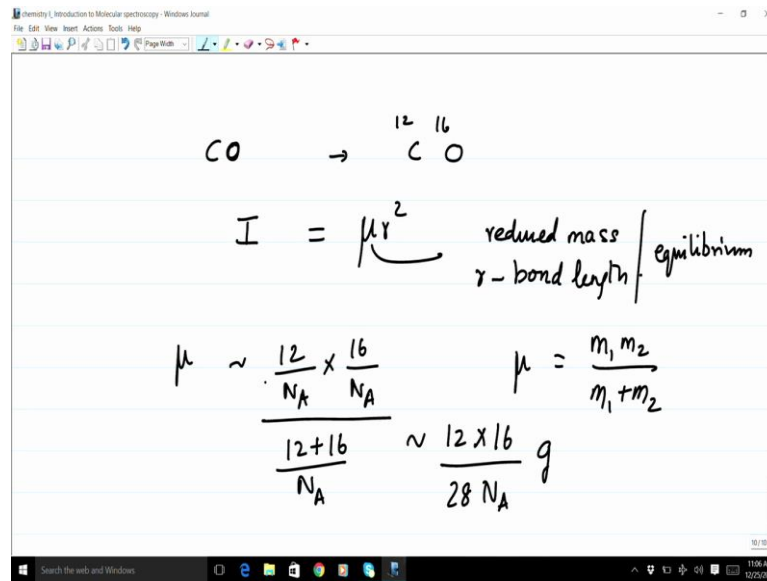 chemistry I_ Introduction to Molecular spectroscopy - Windows Journal
File Edit View Insert Actions Tools Help
Page Width
12 16
CO → C O
I = μr²
reduced mass
r - bond length
equilibrium
μ ~ 12/N_A × 16/N_A
12+16/N_A
~ 12 × 16 / 28 N_A g
μ = m₁ m₂ / m₁ + m₂
10/10
Search the web and Windows
11:06 A